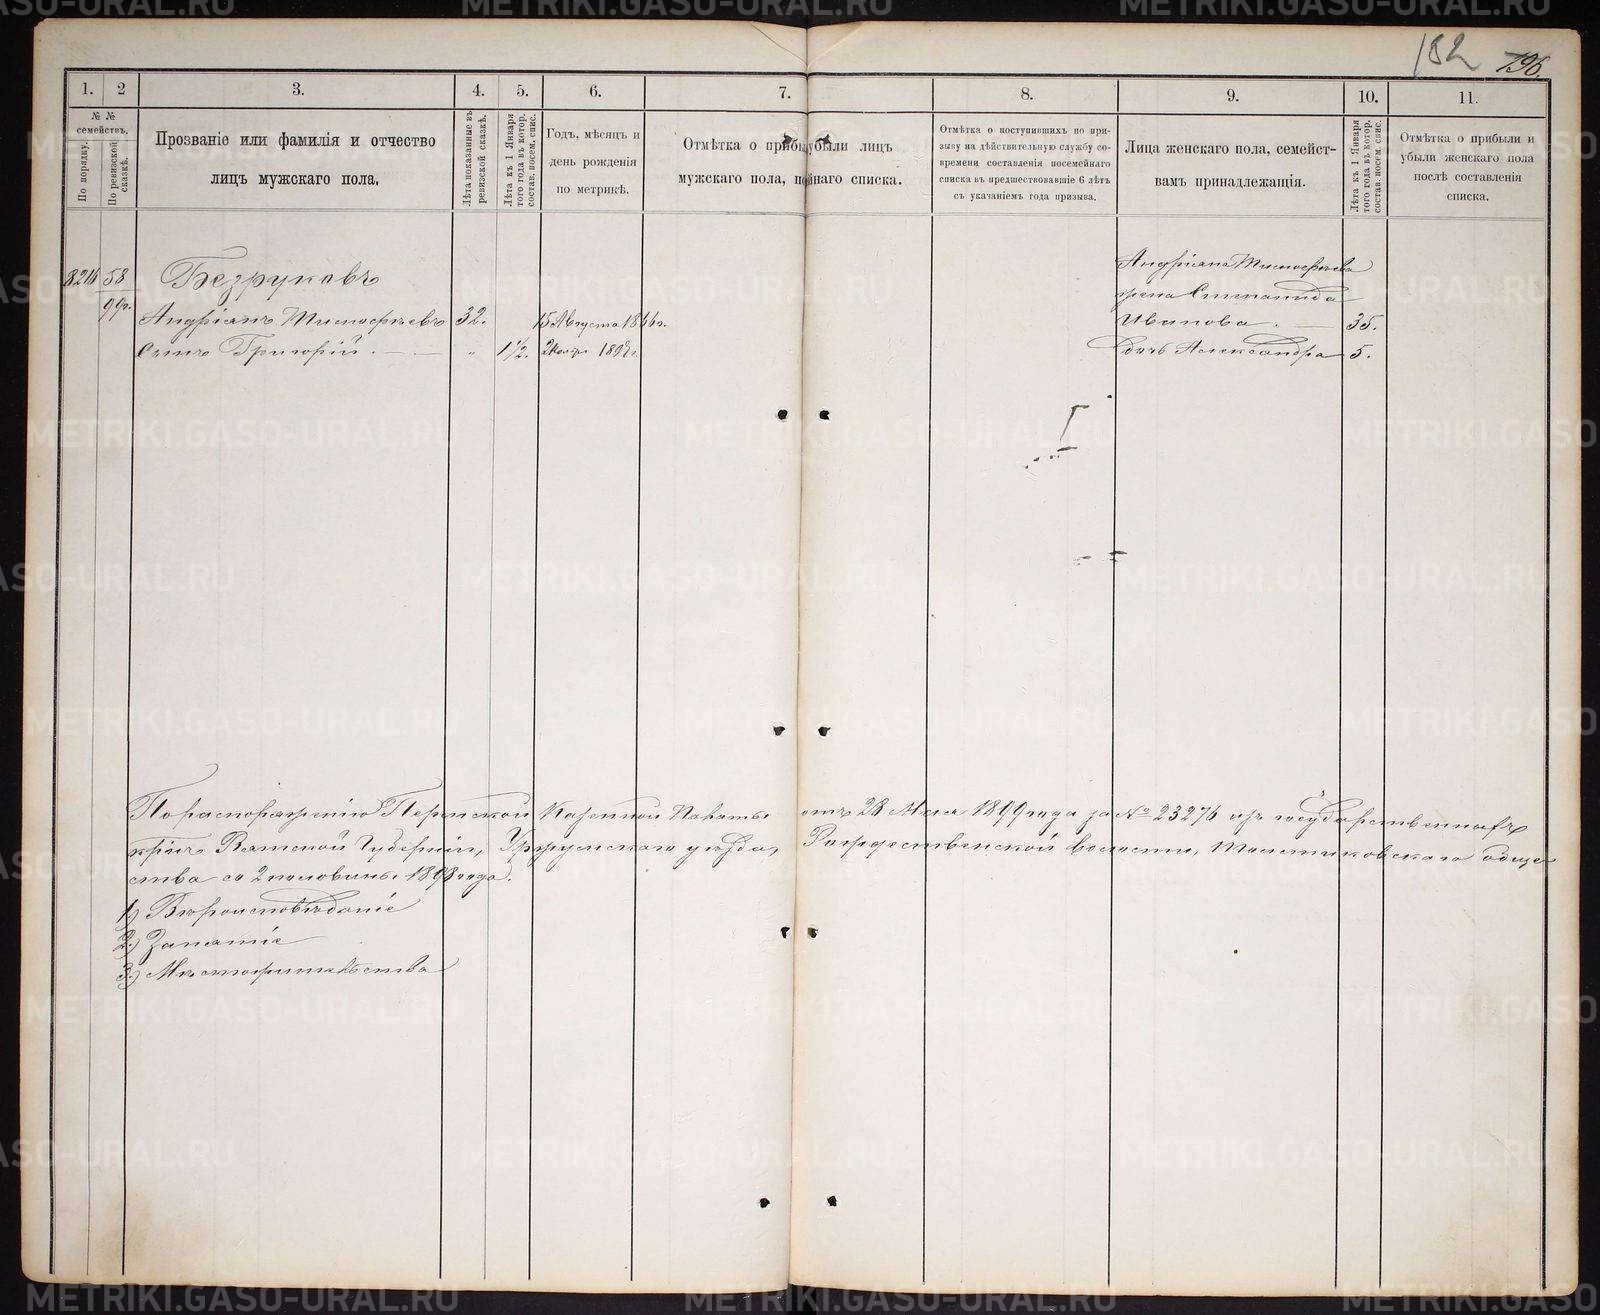 182 796.
1. 2 3. 4. 5. 6. 7. 8. 9. 10. 11.
№ № семействъ.
По порядку.
По ревизской сказкѣ.
Прозваніе или фамилія и отчество
лицъ мужскаго пола.
Лѣта показанные въ ревизской сказкѣ.
Лѣта къ 1 Января того года въ котор. состав. посем. спис.
Годъ, мѣсяцъ и
день рожденія
по метрикѣ.
Отмѣтка о прибы убыли лицъ
мужскаго пола, по наго списка.
Отмѣтка о поступившихъ по при-
зыву на дѣйствительную службу со-
времени составленія посемейнаго
списка въ предшествовавшіе 6 лѣтъ
съ указаніемъ года призыва.
Лица женскаго пола, семейст-
вамъ принадлежащія.
Лѣта къ 1 Января того года въ котор. состав. посем. спис.
Отмѣтка о прибыли и
убыли женскаго пола
послѣ составленія
списка.
58 Безруковъ
99г.
Андріанъ Тимофѣевъ 32. 15 Августа 1866г.
Сынъ Григорій. — — „ 1½. 1897г.
Андріана Тимофѣева
жена Степанида
Иванова. — 35.
Дочь Александра 5.
По распоряженію Пермской Казенной Палаты отъ 28 Мая 1899 года за № 23276 изъ государственныхъ
крес. Вятской Губерніи, Уржумскаго уѣзда, Рождественской волости, общес
ства со 2 половины 1898 года.
1) Вѣроисповѣданіе
2.) Занятіе
3.) Мѣстожительство